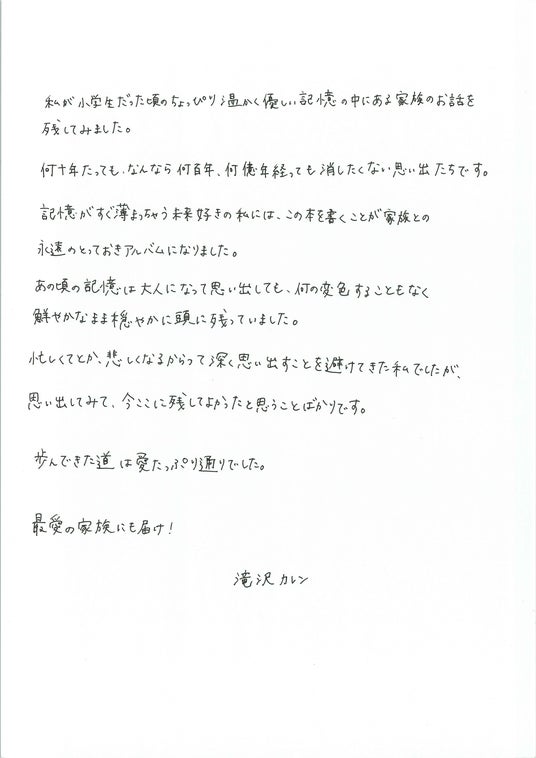 私が小学生だった頃のちょっぴり温かく優しい記憶の中にある家族のお話を
残してみました。
何十年たっても、なんなら何百年、何億年経っても消したくない思い出たちです。
記憶がすぐ薄まっちゃう未来好きの私には、この本を書くことが家族との
永遠のとっておきアルバムになりました。
あの頃の記憶は大人になって思い出しても、何の変色することもなく
鮮やかなまま穏やかに頭に残っていました。
忙しくてとか、悲しくなるからって深く思い出すことを避けてきた私でしたが、
思い出してみて、今ここに残してよかったと思うことばかりです。
歩んできた道は愛たっぷり通りでした。
最愛の家族にも届け!
滝沢カレン